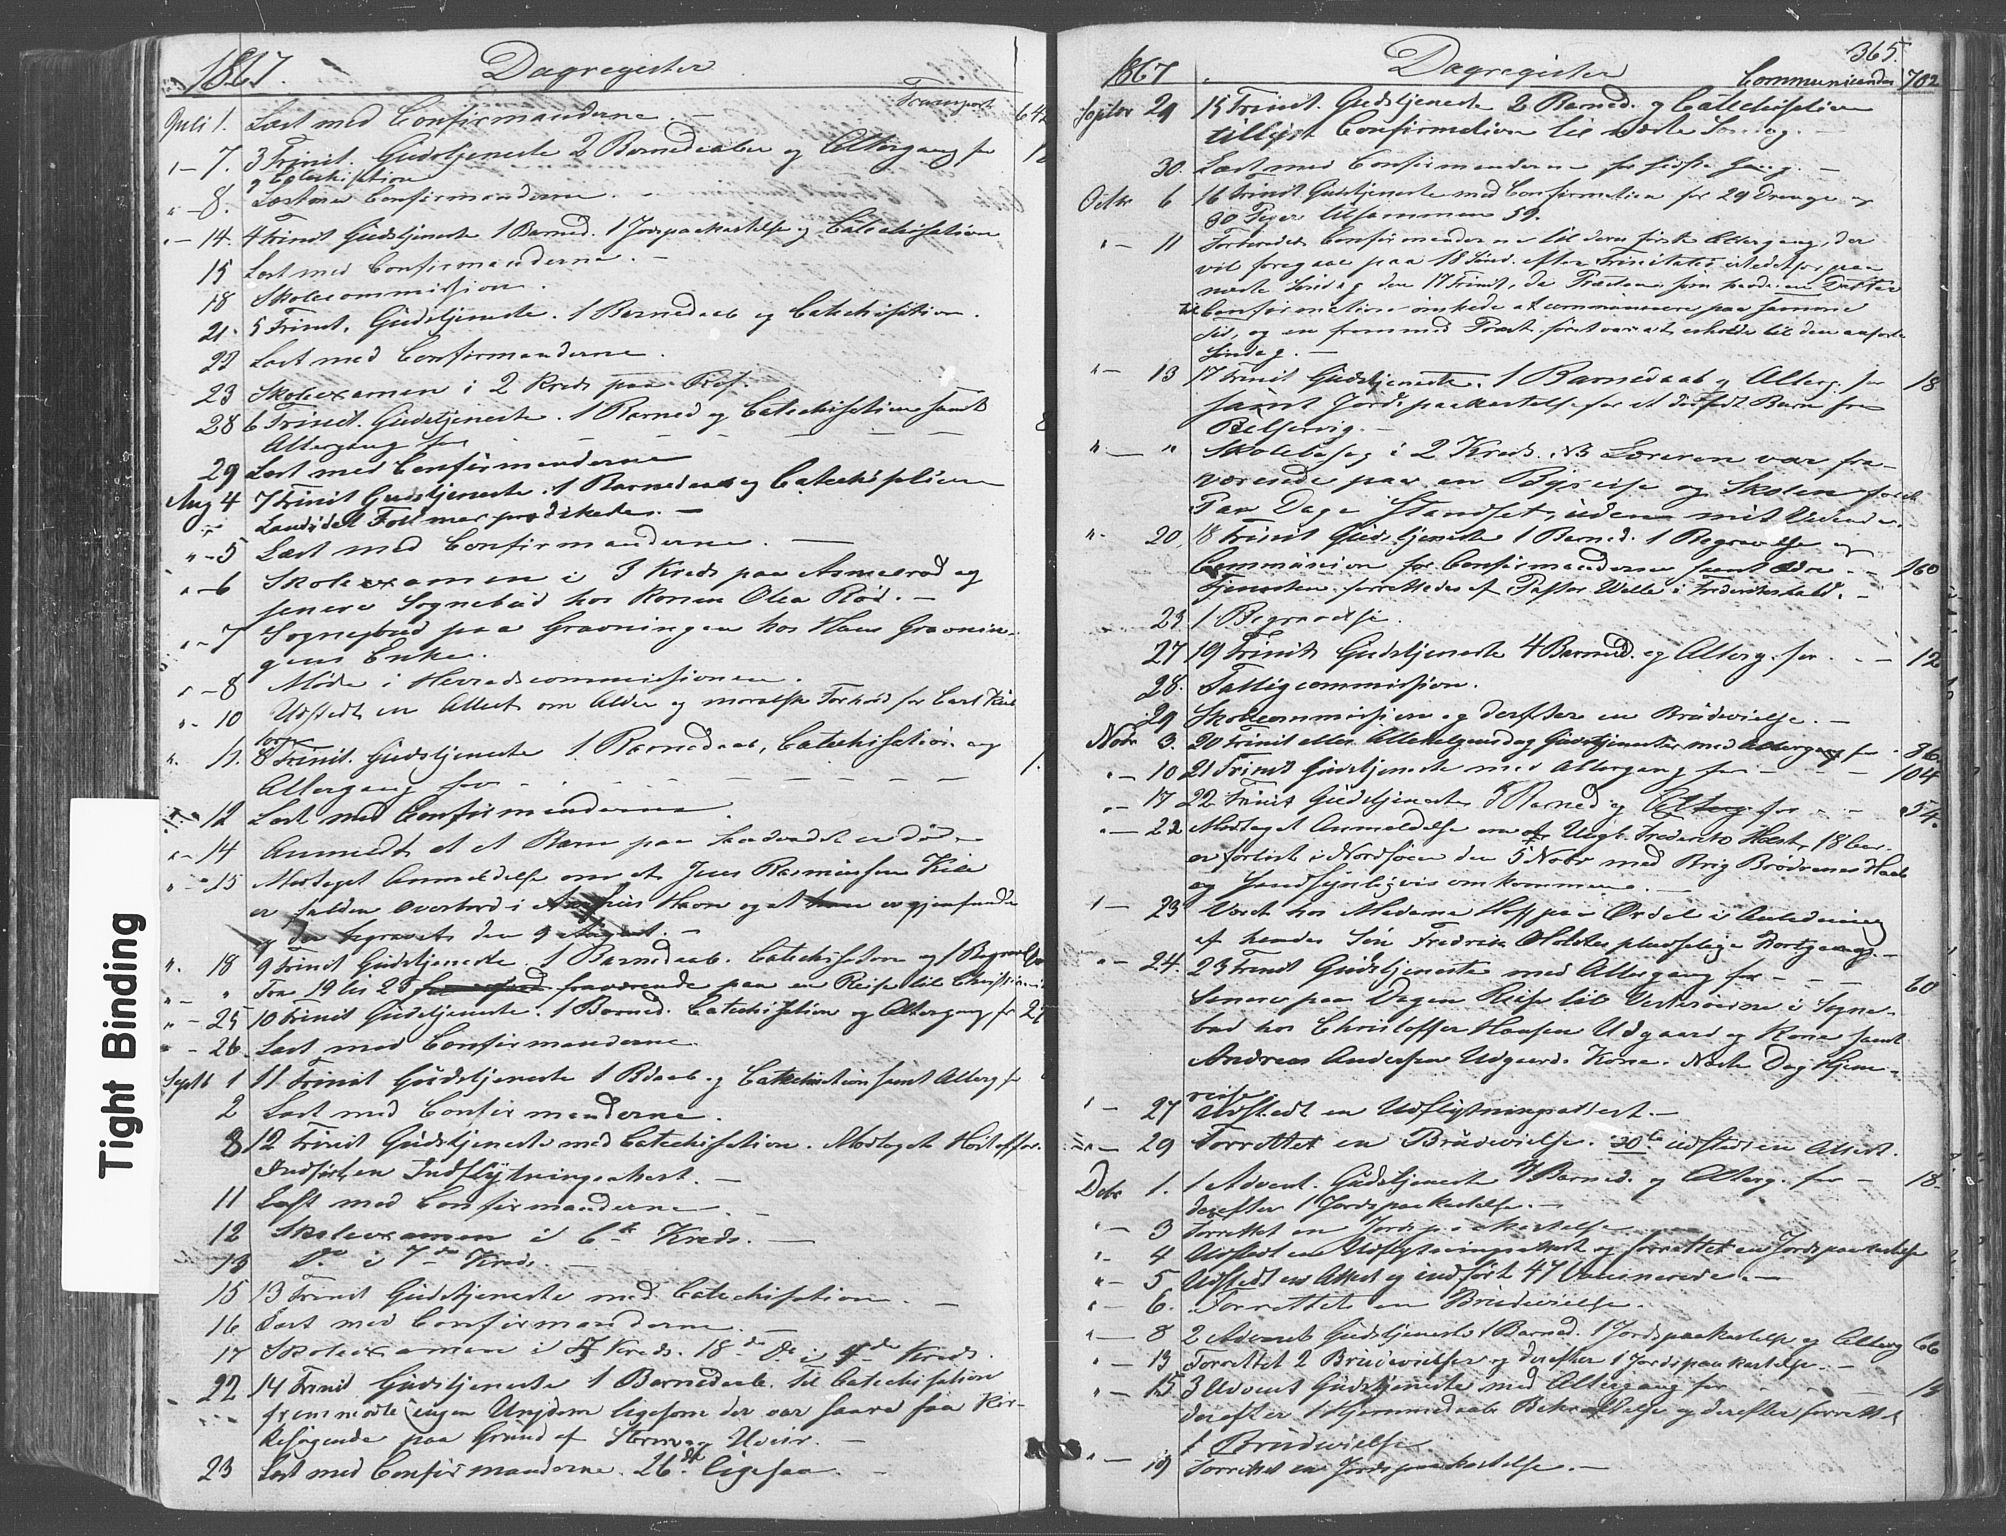 1867. Dagregister
Transport 642
Juli 1. Læst med Confirmanderne. —
" — 7. 3 Trinit. Gudstjeneste 2 Barnedaaber og Altergang for
og Catechisation
" — 8. Læst med Confirmanderne. —
" — 14. 4 Trinit Gudstjeneste 1 Barned. 1 Jordpaakastelse og Catechisation
15 Læst med Confirmanderne. —
18 Skolecommission.
21. 5 Trinit. Gudstjeneste. 1 Barnedaab og Catechisation.
22 Læst med Confirmanderne.
23 Skoleexamen i 2 Kreds paa
28 6 Trinit. Gudstjeneste. 1 Barned og Catechisation samt 8
Altergang for — — — —
29 Læst med Confirmanderne
Aug 4 7 Trinit Gudstjeneste. 1 Barnedaab og Catechisation
Candidat prædikede. —
" — 5 Læst med Confirmanderne. —
" — 6 Skoleexamen i 3 Kreds paa Asmaerød og
senere Sognebud hos Konen Olea Rød. —
" — 7 Sognebud paa Gravningen hos Hans Gravnin-
gens Enke.
" — 8 Møde i Herredscommissionen.
" — 10 Udstedt en Attest om Alder og moralsk Forhold for Carl
" — 11. 8 Trinit. Gudstjeneste 1 Barnedaab, Catechisation og
Altergang for — — — —
" — 12 Læst med Confirmanderne.
" — 14 Anmeldt at et Barn paa er død —
" — 15 Modtaget Anmeldelse om at Jens Rasmussen
er falden overbord i Havn og at er gjenfunden
og der begravet den 9 August. —
" — 18 9 Trinit Gudstjeneste. 1 Barnedaab. Catechisation og 1 Begravelse
" — " Fra 19 til 25 fraværende paa en Reise til Christiania
" — 25 10 Trinit Gudstjeneste. 1 Barned. Catechisation og Altergang for
" — 26. Læst med Confirmanderne.
Septb 1 11 Trinit Gudstjeneste 1 Bdaab. og Catechisation samt Alterg for
2 Læst med Confirmanderne.
8 12 Trinit Gudstjeneste med Catechisation. Modtaget Høstoffer.
Indført en Indflytningsattest. —
11 Læst med Confirmanderne. —
12 Skoleexamen i 6te Kreds. —
13 Do i 7de Kreds. —
15 13 Trinit Gudstjeneste med Catechisation. —
16 Læst med Confirmanderne. —
17 Skoleexamen i 5 Kreds. 18de Do i 4de Kreds.
22 14 Trinit. Gudstjeneste 1 Barnedaab. Til Catechisation
fremmødte ingen Ungdom ligesom der var saare faa Kir-
kesøgende paa Grund af Storm og Uveir. —
23 Læst med Confirmanderne. 26de ligesaa. —
1867. Dagregister 365.
Communicander 702
Septbr 29 15 Trinit. Gudstjeneste 2 Barned. og Catechisation
tillyst Confirmation til næste Søndag. —
30. Læst med Confirmanderne for sidste Gang. —
Octbr 6 16 Trinit Gudstjeneste med Confirmation for 29 Drenge og
30 Piger tilsammen 59.
" — 11 Forberedet Confirmanderne til deres første Altergang, der
vil foregaae paa 18 Sønd. efter Trinitatis istedetfor paa
næste Søndag den 17 Trinit, da Præsten som havde en Datter
til Confirmation ønskede at communicere paa samme
Tid, og en fremmed Præst først var at erholde til den anførte
Søndag. —
" — 13 17 Trinit Gudstjeneste. 1 Barnedaab og Alterg. for 18
samt Jordpaakastelse for et dødfødt Barn fra
" — " Skolebesøg i 2 Kreds. NB Læreren var fra-
værende paa en Byreise og Skolen
Par Dage Standset, uden mit Vidende.
" — 20 18 Trinit Gudstjeneste 1 Barned. 1 Begravelse og
Communion for Confirmanderne samt Ældre. — 160
Tjenesten forrettedes af Pastor Welle i Frederikshald. —
23 1 Begravelse.
27 19 Trinit. Gudstjeneste 4 Barned. og Alterg. for . — 12
28. Fattigcommission.
29 Skolecommission og derefter en Brudevielse. —
Novbr 3. 20 Trinit eller Allehelgensdag Gudstjeneste med Altergang for 86
" — 10 21 Trinit Gudstjeneste med Altergang for — — — 104
" — 17 22 Trinit Gudstjeneste 3 Barned og Alterg for — — 54.
" — 22 Modtaget Anmeldelse om at Ungk. Frederik Holst, 18 Aar.
er forlist i Nordsøen den 5 Novbr med Brig Brødrenes Haab
og sandsynligvis omkommen. —
" — 23 Været hos Madame Hoff paa Ordal i Anledning
af hendes Søn Fredrik Holsts pludselige Bortgang. —
" — 24. 23 Trinit Gudstjeneste med Altergang for — — — 60
Senere paa Dagen Reise til Vesterøerne i Sogne-
bud hos Christoffer Hansen Udgaard og Kone samt
Andreas Andersen Udgaards Kone. Næste Dag Hjem-
reise.
" — 27 Udstedt en Udflytningsattest. —
" — 29 Forrettet en Brudevielse. 30te udstedt en Attest.
Decbr 1. 1 Advent. Gudstjeneste 3 Barned. og Alterg. for — 18.
derefter 1 Jordpaakastelse. —
" — 3 Forrettet en Jordpaakastelse
" — 4 Udstedt en Udflytningsattest og forrettet en Jordpaakastelse
" — 5 Udstedt en Attest og indført 47 Vaccinerede. —
" — 6. Forrettet en Brudevielse.
" — 8 2 Advent Gudstjeneste 1 Barned. 1 Jordpaakastelse og Alterg 66
" — 13 Forrettet 2 Brudevielser og derefter 1 Jordpaakastelse. —
" — 15 3 Advent Gudstjeneste med Altergang for — — —
derefter 1 Hjemmedaabs Bekræftelse og derefter forrettet
1 Brudevielse.
" — 19 Forrettet en Jordpaakastelse. —
Tight Binding